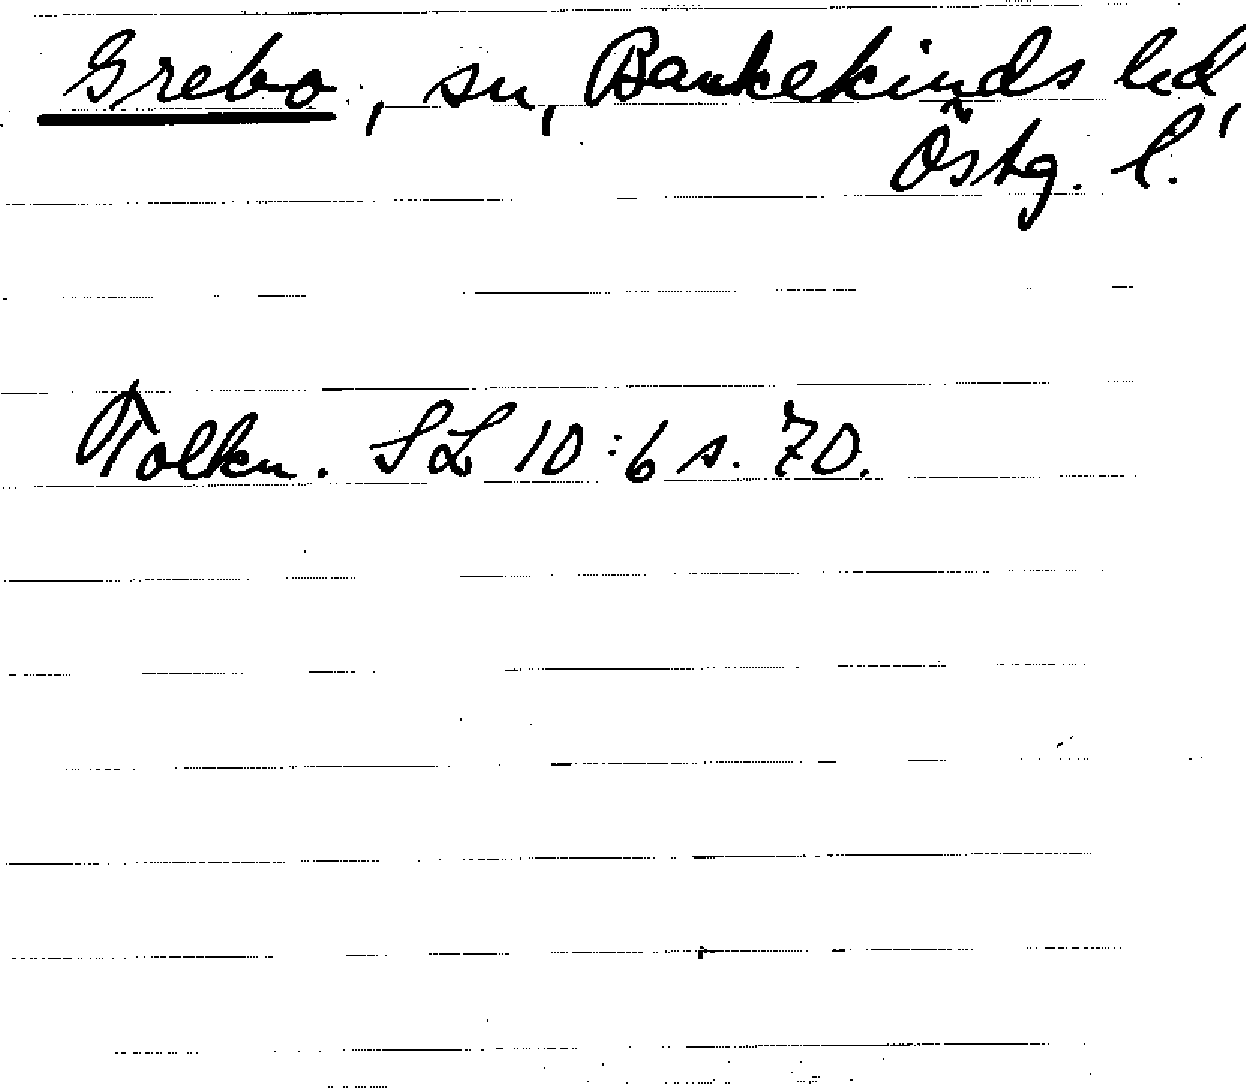 Grebo, sn, Bankekinds hd,
Östg. l.
Tolkn. SL 10:6 s. 70.